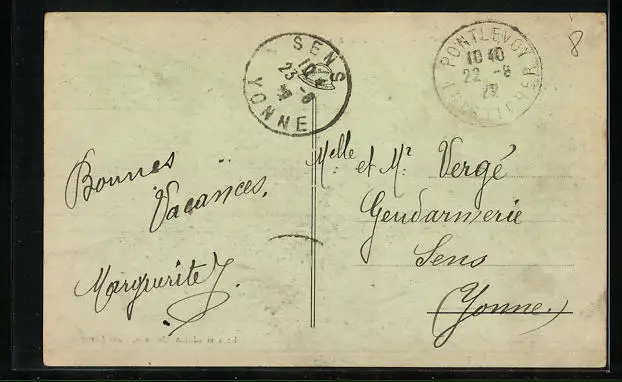 SENS
10
23 -8
YONNE
PONTLEVOY
10 40
22 -8
22
LOIR-ET-CHER
8
Bonnes
Vacances.
Marguerite J.
Melle et Mr. Vergé
Gendarmerie
Sens
(Yonne.)